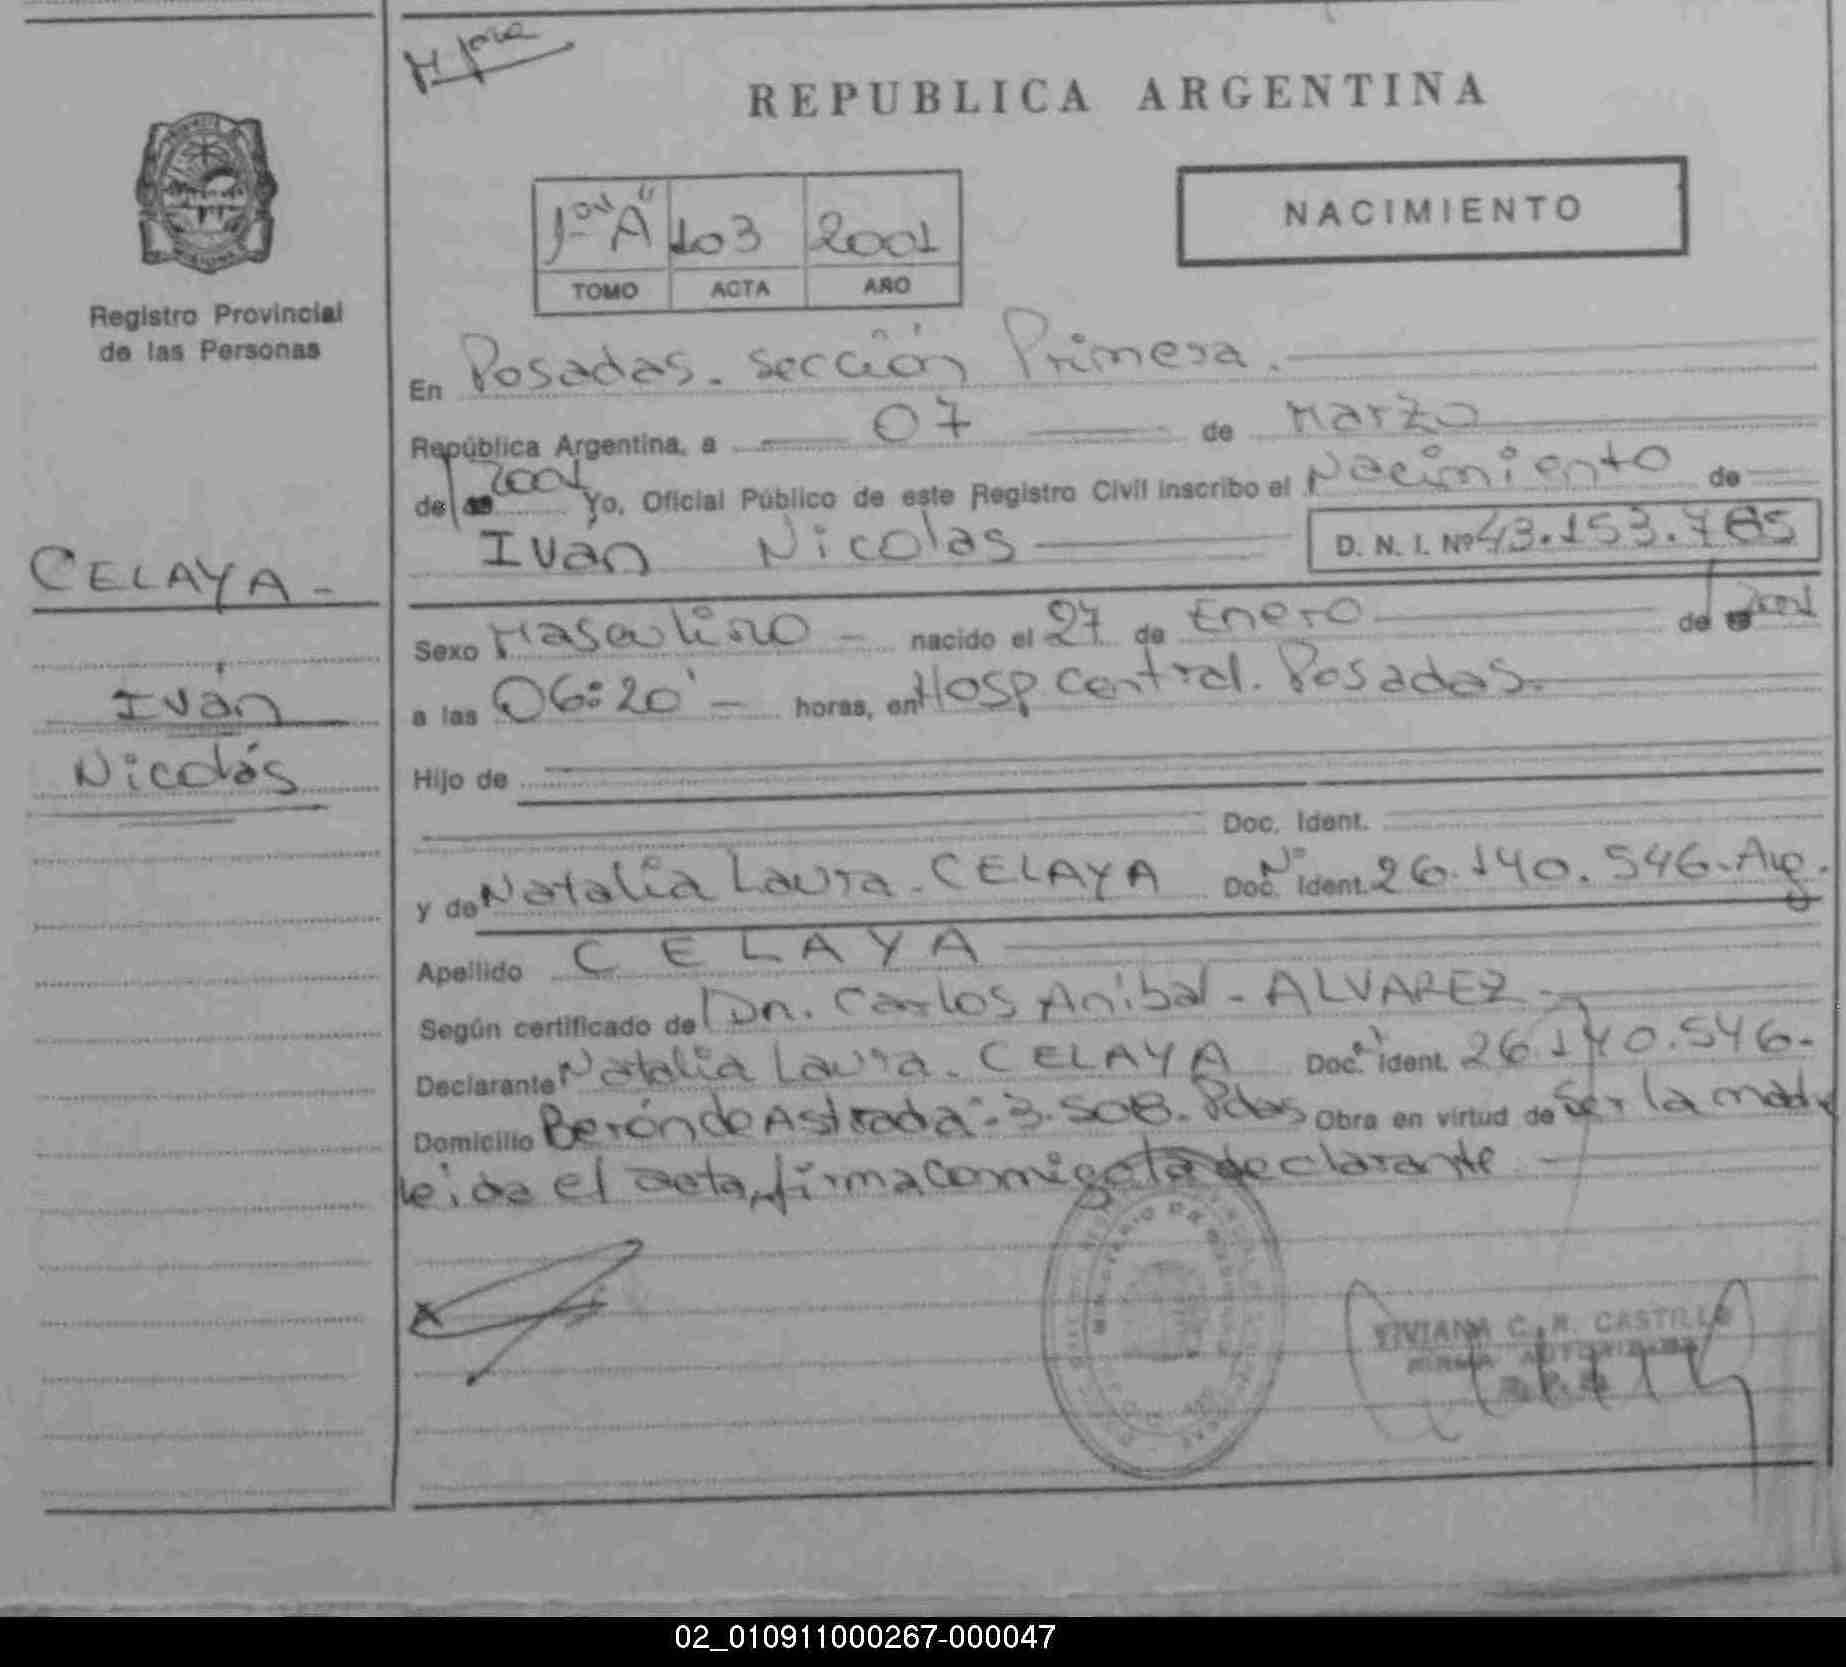 REPUBLICA ARGENTINA
NACIMIENTO
1º "A" 103 2001
TOMO ACTA AÑO
Registro Provincial
de las Personas
CELAYA -
Iván
Nicolás
En Posadas. sección Primera.
República Argentina, a 07 de Marzo
de 2001 Yo, Oficial Público de este Registro Civil inscribo el Nacimiento de
Ivan Nicolas D. N. I. Nº 43.153.785
Sexo Masculino - nacido el 27 de Enero de 2001
a las 06:20' - horas, en Hosp Central. Posadas.
Hijo de
Doc. Ident.
y de Natalia Laura. CELAYA Doc. Nº Ident. 26.140.546-Arg.
Apellido CELAYA
Según certificado de Dn. Carlos Anibal - ALVAREZ
Declarante Natalia Laura. CELAYA Doc. Ident. 26.140.546-
Domicilio Berón de Astrada: 3.508. Pdas Obra en virtud de Ser la madre
leida el acta, firma conmigo la declarante
VIVIANA C. R. CASTILLO
FIRMA AUTORIZADA
02_010911000267-000047